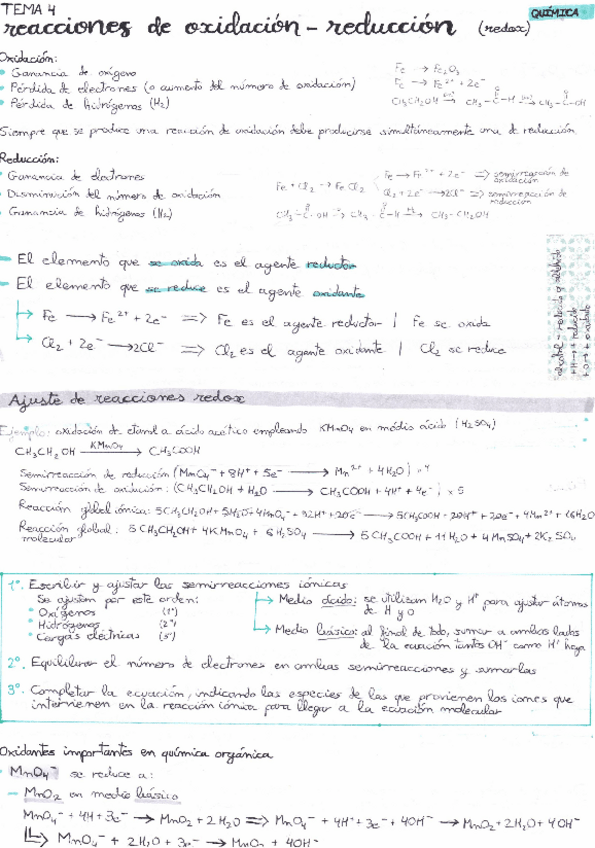 TEMA 4
QUÍMICA
reacciones de oxidación - reducción (redox)
Oxidación:
• Ganancia de oxígeno Fe → Fe2O3
• Pérdida de electrones (o aumento del número de oxidación) Fe → Fe²⁺ + 2e⁻
• Pérdida de hidrógenos (H2) CH3CH2OH → CH3-C-H → CH3-C-OH
Siempre que se produce una reacción de oxidación debe producirse simultáneamente una de reducción
Reducción:
• Ganancia de electrones Fe → Fe²⁺ + 2e⁻ => semirreacción de oxidación
• Disminución del número de oxidación Fe + Cl2 → FeCl2 Cl2 + 2e⁻ → 2Cl⁻ => semirreacción de reducción
• Ganancia de hidrógenos (H2) CH3-C-OH → CH3-C-H → CH3-CH2OH
- El elemento que se oxida es el agente reductor
- El elemento que se reduce es el agente oxidante
Fe → Fe²⁺ + 2e⁻ => Fe es el agente reductor | Fe se oxida
Cl2 + 2e⁻ → 2Cl⁻ => Cl2 es el agente oxidante | Cl2 se reduce
Ajuste de reacciones redox
Ejemplo: oxidación de etanol a ácido acético empleando KMnO4 en medio ácido (H2SO4)
CH3CH2OH KMnO4 → CH3COOH
Semirreacción de reducción (MnO4⁻ + 8H⁺ + 5e⁻ → Mn²⁺ + 4H2O) · 4
Semirreacción de oxidación: (CH3CH2OH + H2O → CH3COOH + 4H⁺ + 4e⁻) x 5
Reacción global iónica: 5CH3CH2OH + 5H2O + 4MnO4⁻ + 32H⁺ + 20e⁻ → 5CH3COOH + 20H⁺ + 20e⁻ + 4Mn²⁺ + 16H2O
Reacción global molecular: 5CH3CH2OH + 4KMnO4 + 6H2SO4 → 5CH3COOH + 11H2O + 4MnSO4 + 2K2SO4
1º. Escribir y ajustar las semirreacciones iónicas
Se ajustan por este orden:
• Oxígenos (1º)
• Hidrógenos (2º)
• Cargas eléctricas (3º)
Medio ácido: se utilizan H2O y H⁺ para ajustar átomos
de H y O
Medio básico: al final de todo, sumar a ambos lados
de la ecuación tantos OH⁻ como H⁺ haya
2º. Equilibrar el número de electrones en ambas semirreacciones y sumarlas
3º. Completar la ecuación, indicando las especies de las que provienen los iones que
intervienen en la reacción iónica para llegar a la ecuación molecular
Oxidantes importantes en química orgánica
• MnO4⁻ se reduce a:
- MnO2 en medio básico
MnO4⁻ + 4H + 3e⁻ → MnO2 + 2H2O => MnO4⁻ + 4H⁺ + 3e⁻ + 4OH⁻ → MnO2 + 2H2O + 4OH⁻
MnO4⁻ + 2H2O + 3e⁻ → MnO2 + 4OH⁻